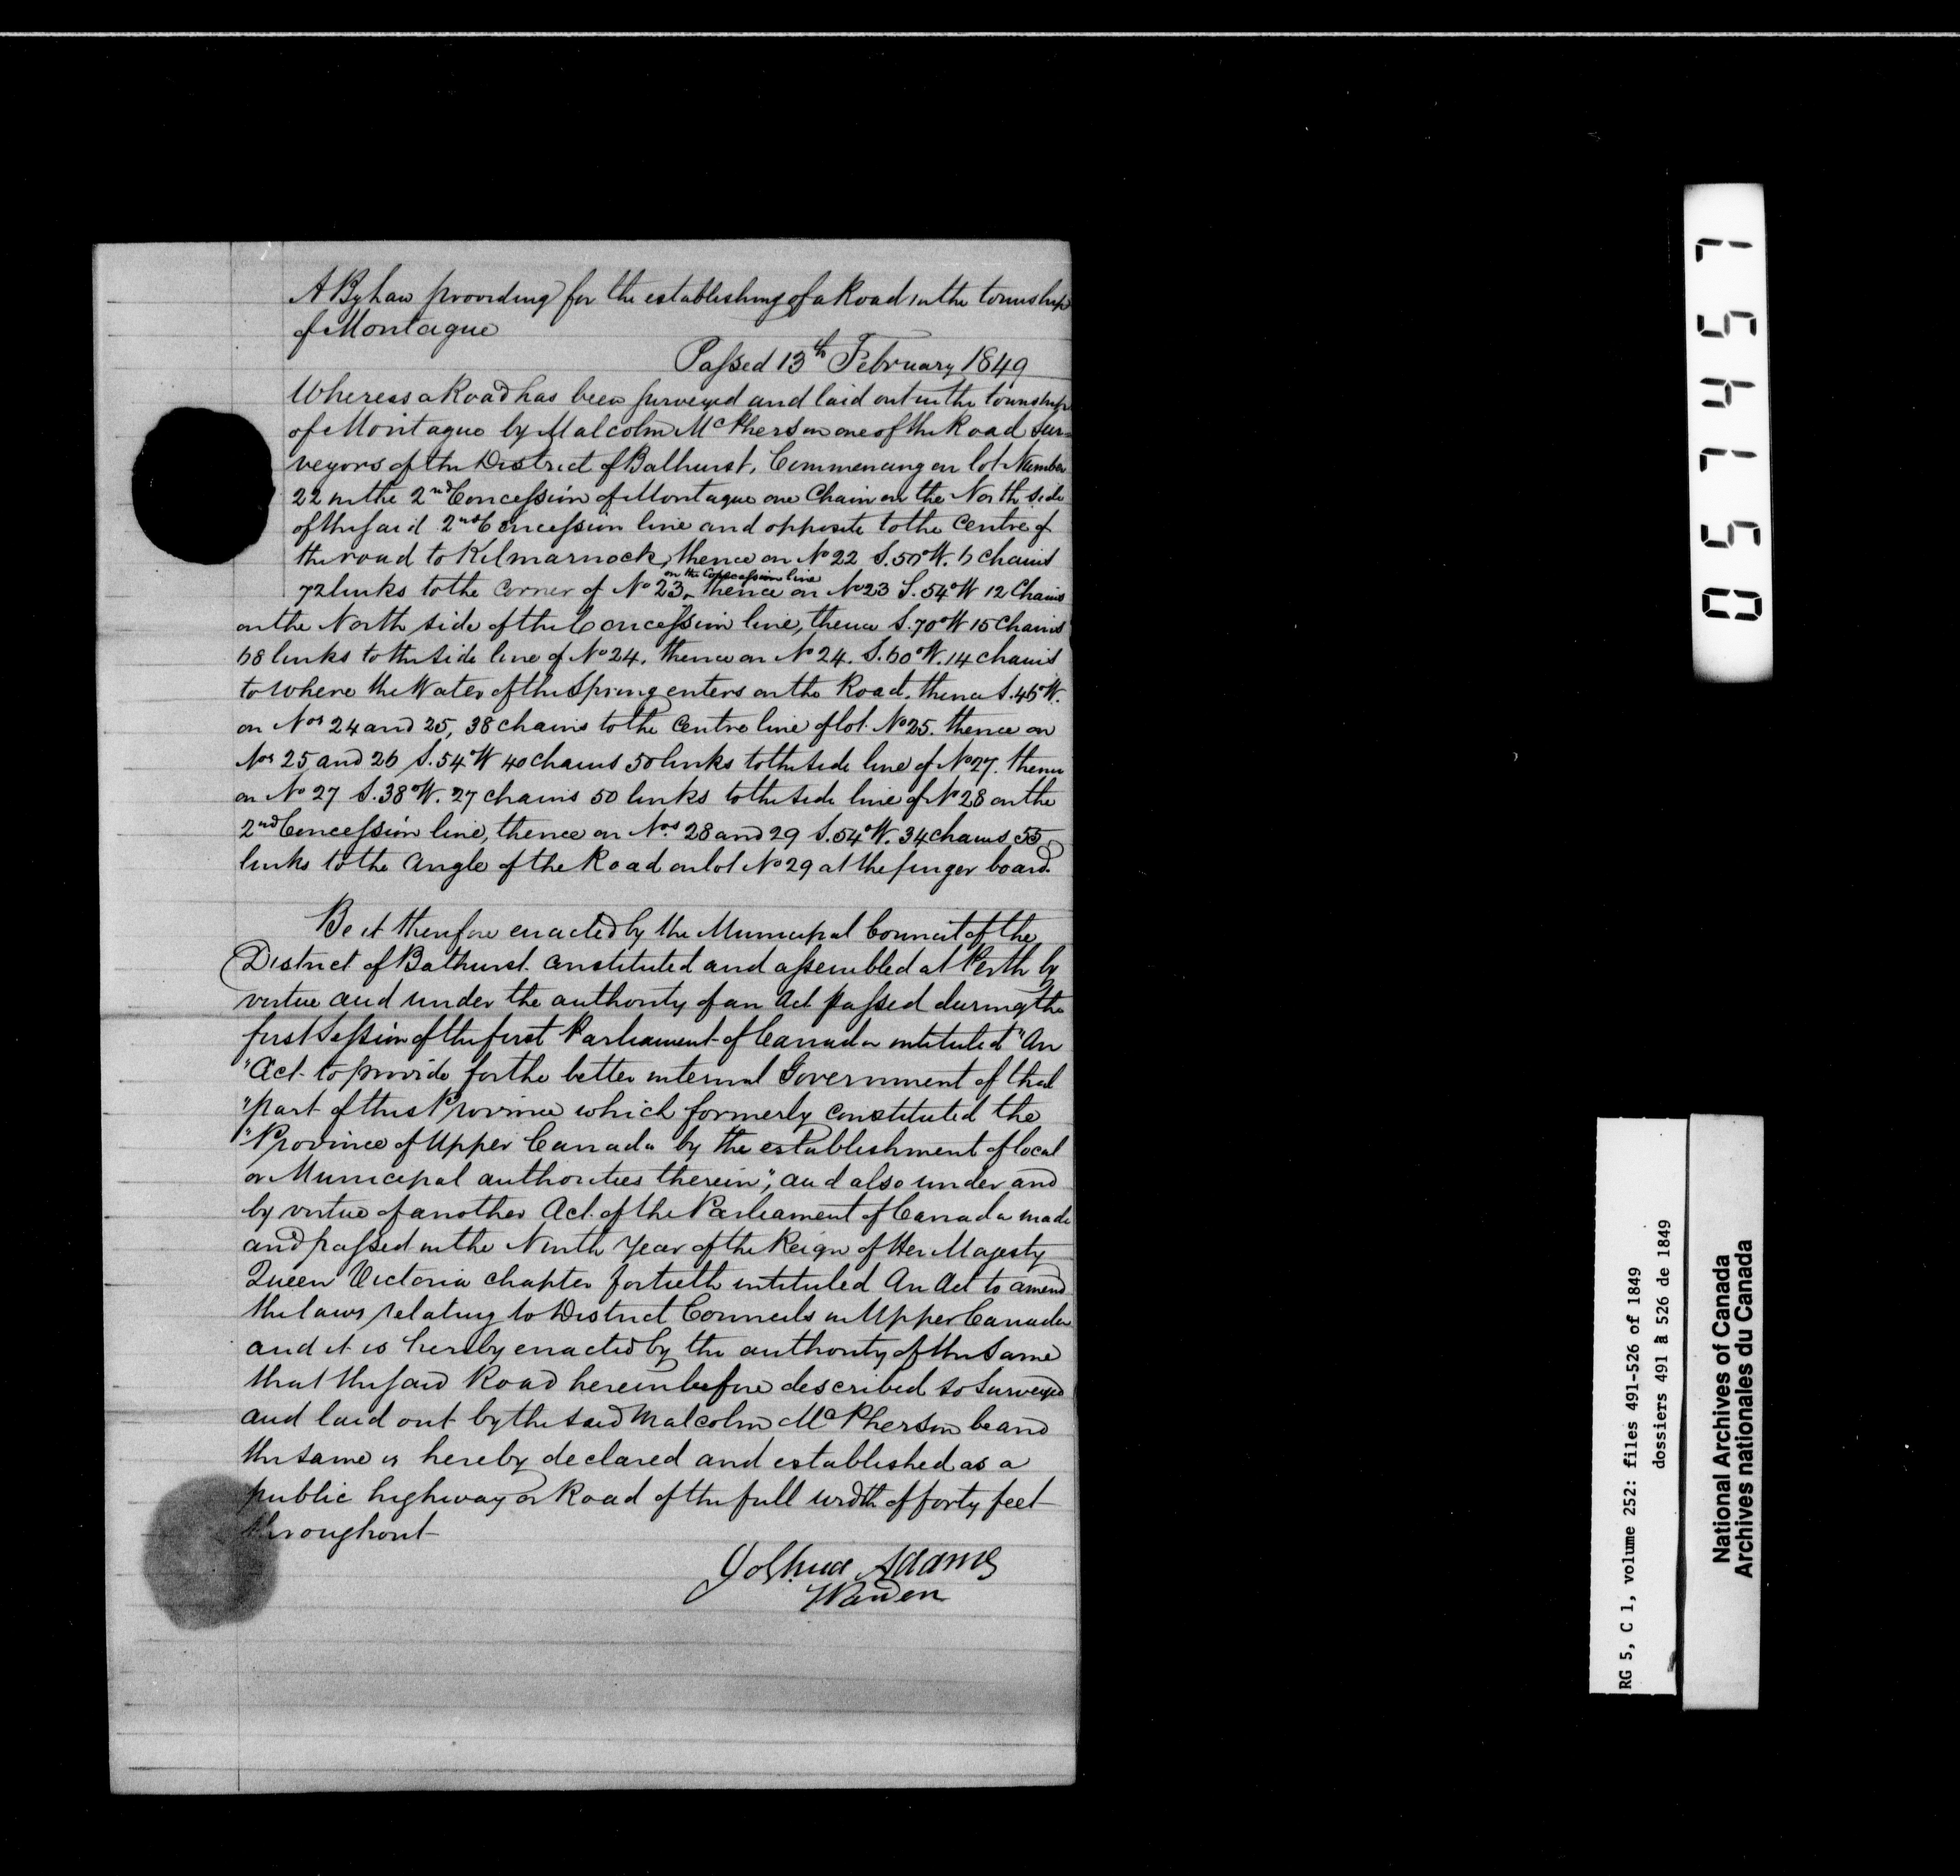 A By Law providing for the establishing of a Road in the township
of Montague
Passed 13th February 1849
Whereas a Road has been surveyed and laid out in the township
of Montague by Malcolm McPherson one of the Road Sur=
veyors of the District of Bathurst, Commencing on lot Number
22 in the 2nd Concession of Montague one Chain on the North side
of the said 2nd Concession line and opposite to the Centre of
the road to Kilmarnock, thence on No 22 S. 50° W. 6 Chains
on the Concession line
72 links to the Corner of No 23, thence on No 23 S. 54° W 12 Chains
on the North side of the Concession line, thence S. 70° W 15 Chains
68 links to the side line of No 24, thence on No 24. S. 60° W. 14 chains
to where the Water of the Spring enters on the Road, thence S. 46° W.
on Nos 24 and 25, 38 chains to the Centre line of lot No 25. thence on
Nos 25 and 26 S. 54° W 40 chains 50 links to the side line of No 27. thence
on No 27 S. 38° W. 27 chains 50 links to the side line of No 28 on the
2nd Concession line, thence on Nos 28 and 29 S. 54° W. 34 chains 55
links to the Angle of the Road on lot No 29 at the finger board.
Be it therefore enacted by the Municipal Council of the
District of Bathurst constituted and assembled at Perth by
virtue and under the authority of an Act passed during the
first Session of the first Parliament of Canada intituled "An
"Act to provide for the better internal Government of that
"part of this Province which formerly constituted the
"Province of Upper Canada by the establishment of local
or Municipal authorities therein", and also under and
by virtue of another Act of the Parliament of Canada made
and passed in the Ninth Year of the Reign of Her Majesty
Queen Victoria chapter fortieth intituled An Act to amend
the laws relating to District Councils in Upper Canada
and it is hereby enacted by the authority of the same
that the said Road hereinbefore described so surveyed
and laid out by the said Malcolm McPherson be and
the same is hereby declared and established as a
public highway or Road of the full width of forty feet
throughout
Joshua Adams
Warden
057457
RG 5, C 1, volume 252: files 491-526 of 1849
dossiers 491 à 526 de 1849
National Archives of Canada
Archives nationales du Canada